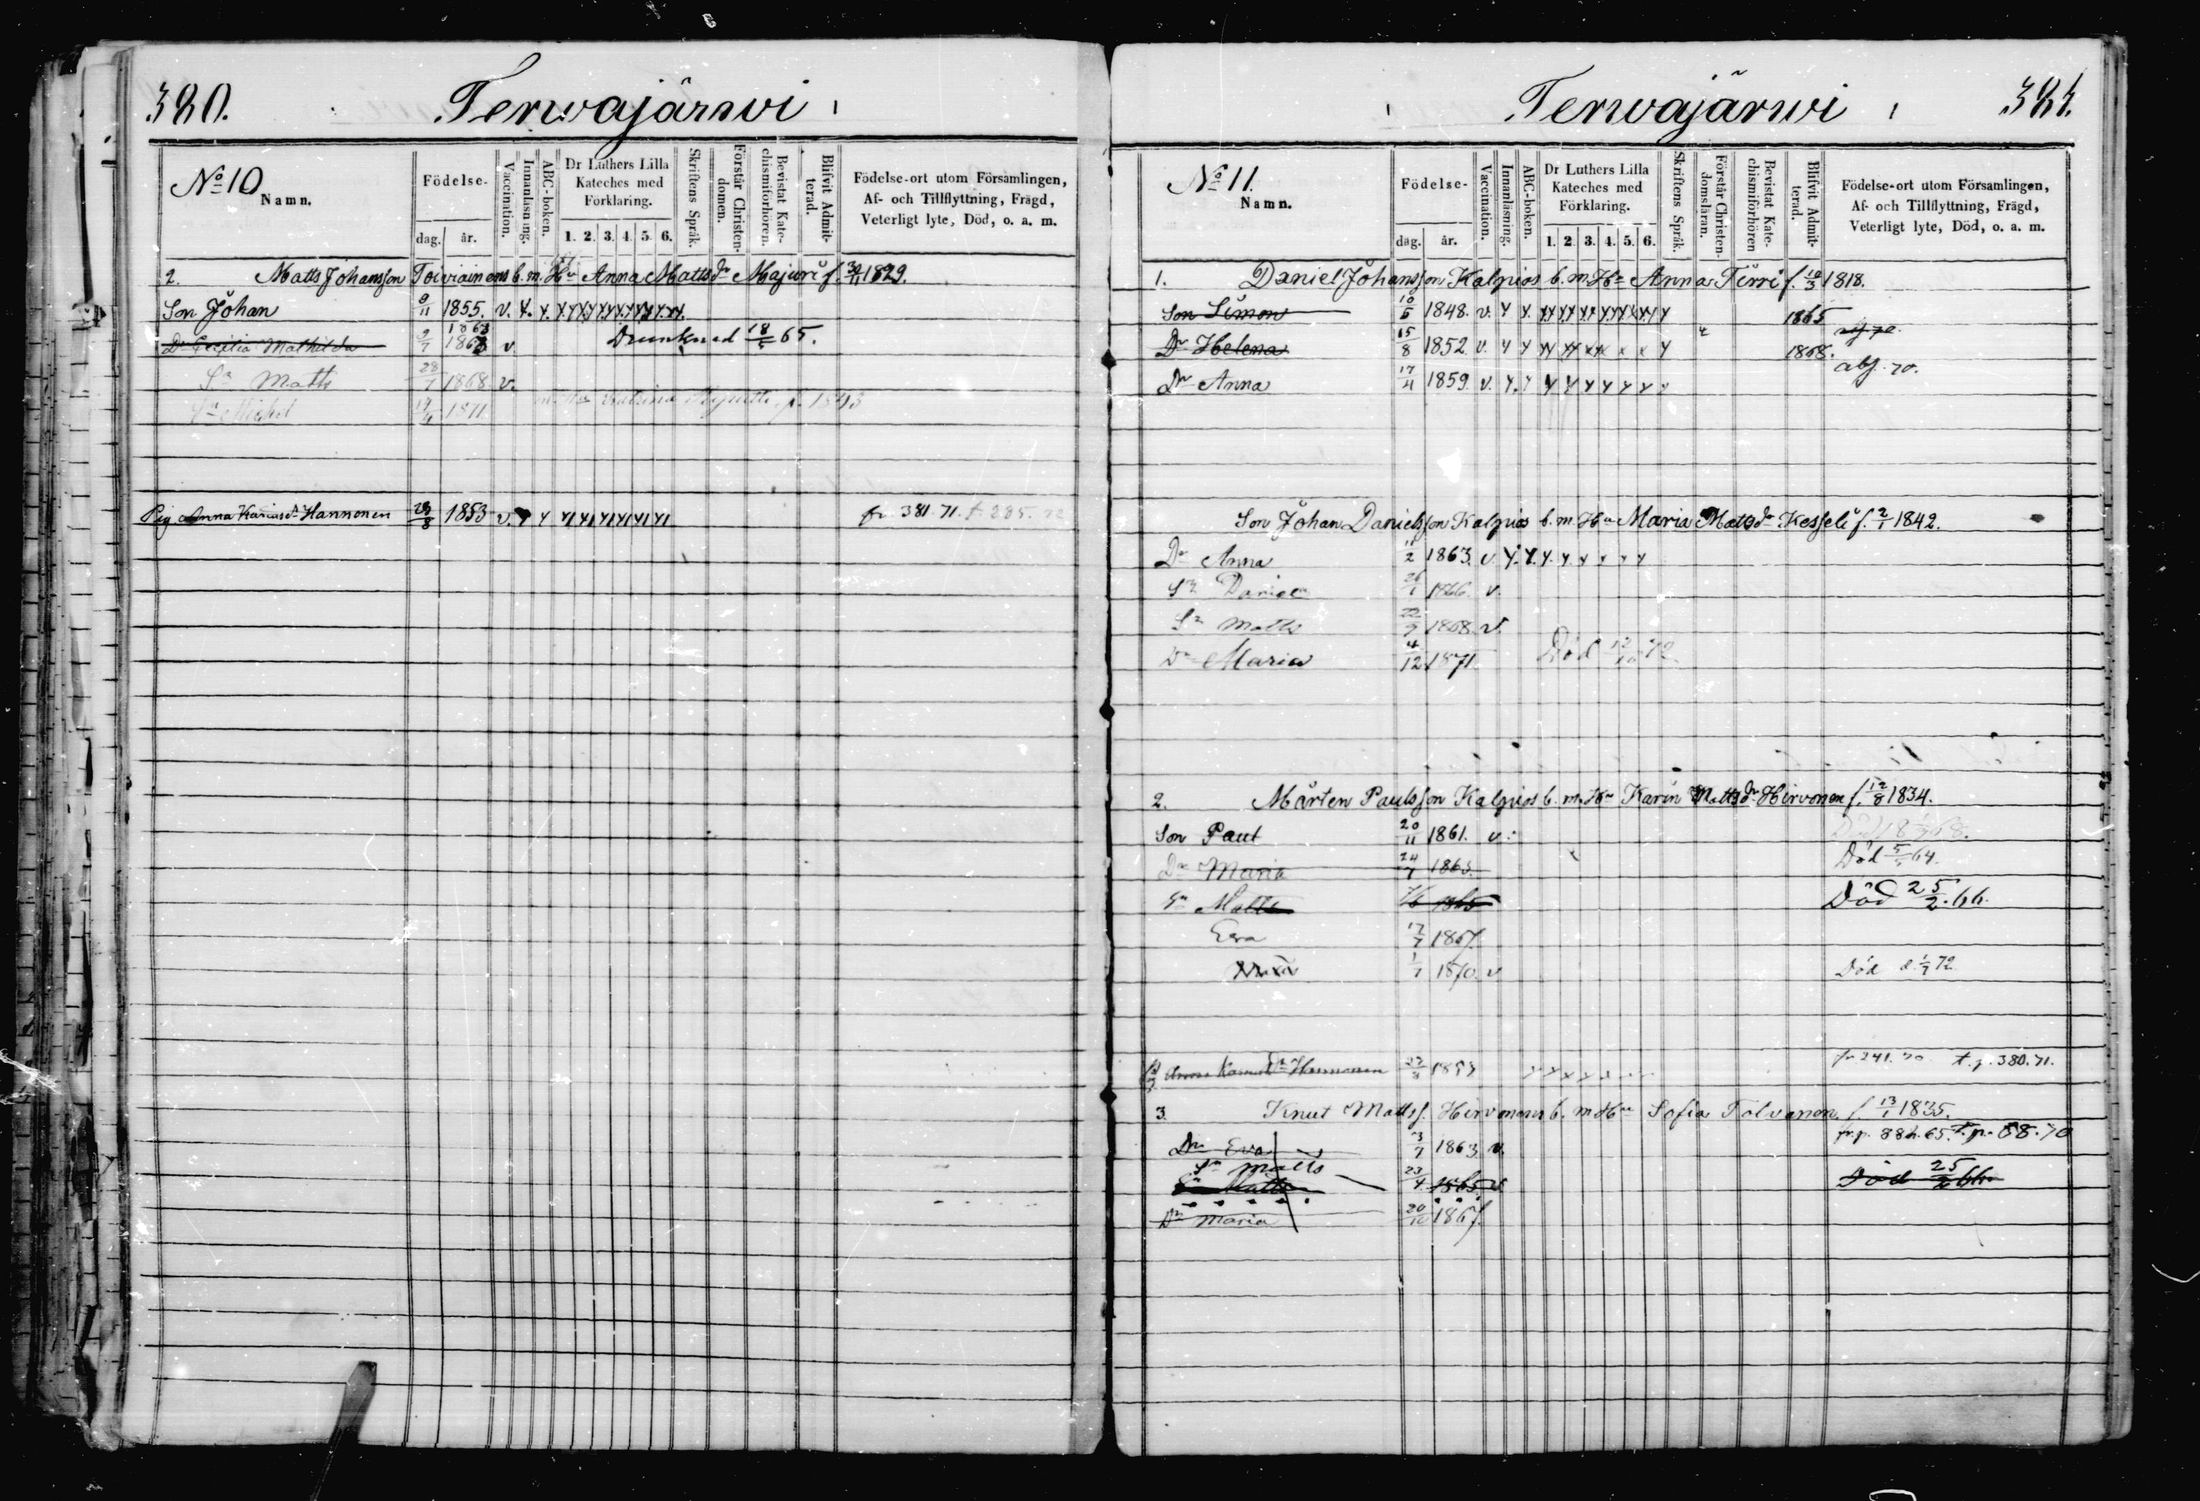 380.
Terwajärwi
No 10
Namn.
Födelse-
dag.
år.
Vaccination.
Innanläsning.
ABC-boken.
Dr Luthers Lilla
Kateches med
Förklaring.
1. 2. 3. 4. 5. 6.
Skriftens Språk.
Förstår Christen-
domen.
Bevistat Kate-
chismiförhören.
Blifvit Admit-
terad.
Födelse-ort utom Församlingen,
Af- och Tillflyttning, Frägd,
Veterligt lyte, Död, o. a. m.
2. Matts Johansson Toiviainens b. m. Hu Anna Mattsdr Majuri f. 1829.
Son Johan 9/11 1855. v.
Dr Cecilia Mathilda 2/7 1863 1863 v Drunknad 18/5 65.
Sn Matts 28/7 1868 v.
Sn Michel 1871. Katrina f. 1843
Pig Anna Karin Hannonen 23/8 1853 v. fr 381. 71.
Terwajärwi
381.
No 11.
Namn.
Födelse-
dag.
år.
Vaccination.
Innanläsning.
ABC-boken.
Dr Luthers Lilla
Kateches med
Förklaring.
1. 2. 3. 4. 5. 6.
Skriftens Språk.
Förstår Christen-
domsläran.
Bevistat Kate-
chismiförhören
Blifvit Admit-
terad.
Födelse-ort utom Församlingen,
Af- och Tillflyttning, Frägd,
Veterligt lyte, Död, o. a. m.
1. Daniel Johansson Kalpios b. m. Hu Anna Tirri f. 10/3 1818.
Son Simon 10/5 1848. v. 1865
Dr Helena 15/8 1852. v. 1868. abs. 70.
Dr Anna 17/4 1859. v.
Son Johan Danielsson Kalpios b. m. Hu Maria Mattsdr Kesseli f. 2/1 1842.
Dr Anna 11/2 1863. v
Sn Daniel 26/1 1866. v.
Sn Matts 22/9 1868. v.
Dr Maria 4/12 1871. Död 12/10 72
2. Mårten Paulsson Kalpios b. m. Hu Karin Mattsdr Hirvonen f. 12/8 1834.
Son Paul 20/11 1861. v.
Dr Maria 24/7 1863. Död 5/5 64.
Sn Matts 1865 Död 25/2. 66.
Eva 17/7 1867.
1/7 1870. v Död d. 1/7 72
Anna Karin Dr Hannonen 23/8 1853 fr 241. 70 t. p. 380. 71.
3. Knut Mattss. Hirvonens b. m. Hu Sofia Tolvanen f. 13/1 1835.
Dr Eva 3/7 1863 v. fr. p. 882. 65. t. p. 88. 70
Sn Matts
Sn Matts 23/4 1865 v Död 25/2 66
Dr Maria 20/10 1867.